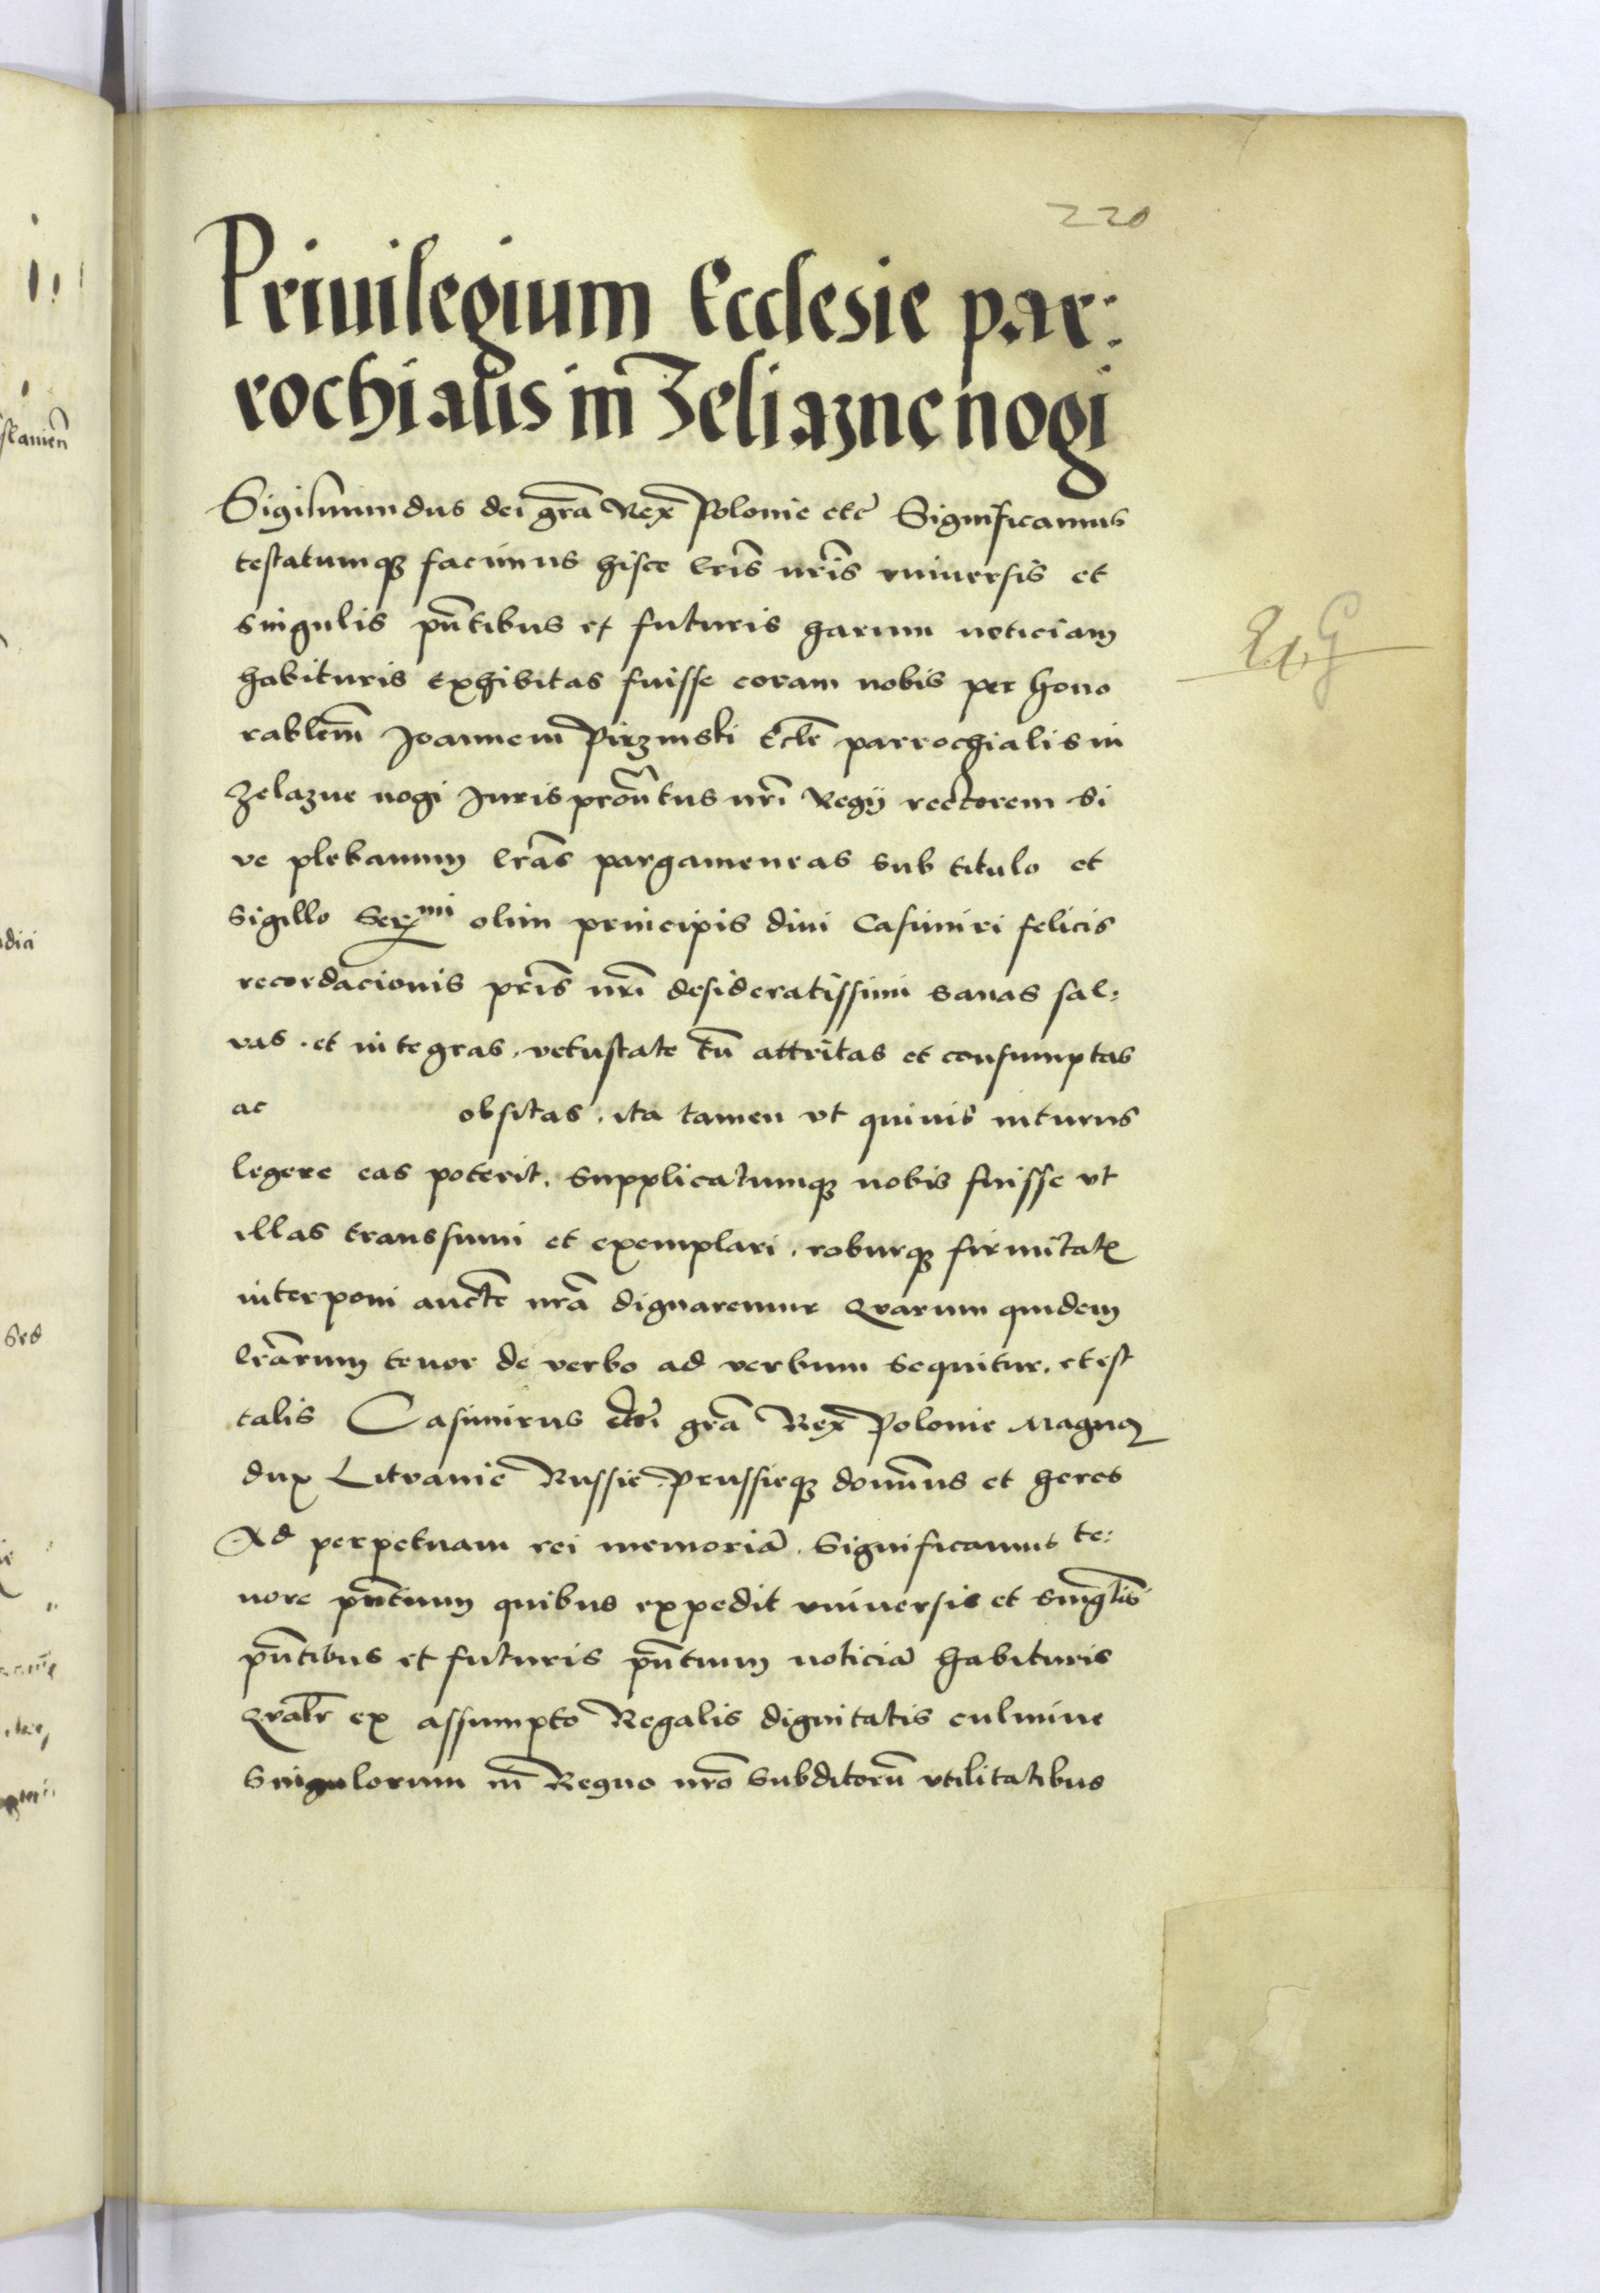 220
Priuilegium Ecclesie par:
rochialis in Zeliaznenogi
Sigismundus dei gra Rex Polonie etc Significamus
testatumq facimus hisce lris nris vniuersis et
singulis pntibus et futuris harum noticiam
habituris exhibitas fuisse coram nobis per hono
rablem Joannem Pirzinski Eccle parrochialis in
Zelazne nogi Juris pronatus nri Regij rectorem si
ve plebanum lras pargameneas sub titulo et
sigillo Ser mi olim principis diui Casimiri felicis
recordacionis pris nri desideratissimi sanas sal:
vas . et integras . vetustate tn attritas et consumptas
ac obsitas . ita tamen vt quiuis inturus
legere eas poterit . supplicatumq nobis fuisse vt
illas transsumi et exemplari . roburq firmitatis
interponi aucte nra dignaremur Quarum quidem
lrarum tenor de verbo ad verbum sequitur . et est
talis Casimirus dei gra Rex Polonie Magnus
dux Lituanie Russie Prussieq dominus et heres
Ad perpetuam rei memoria . Significamus te:
nore pntium quibus expedit vniuersis et singlis
pntibus et futuris pntium noticia habituris
Qualr ex assumpto Regalis dignitatis culmine
Singulorum in Regno nro subditoru vtilitatibus